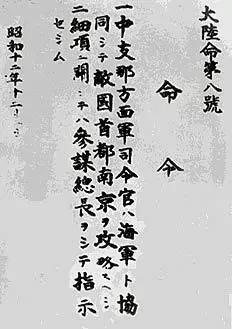 大陸命第八號
命令
一中支那方面軍司令官ハ海軍ト協
同シテ敵國首都南京ヲ攻略スヘシ
二細項ニ關シテハ參謀總長ヲシテ指示
セシム
昭和十二年十二